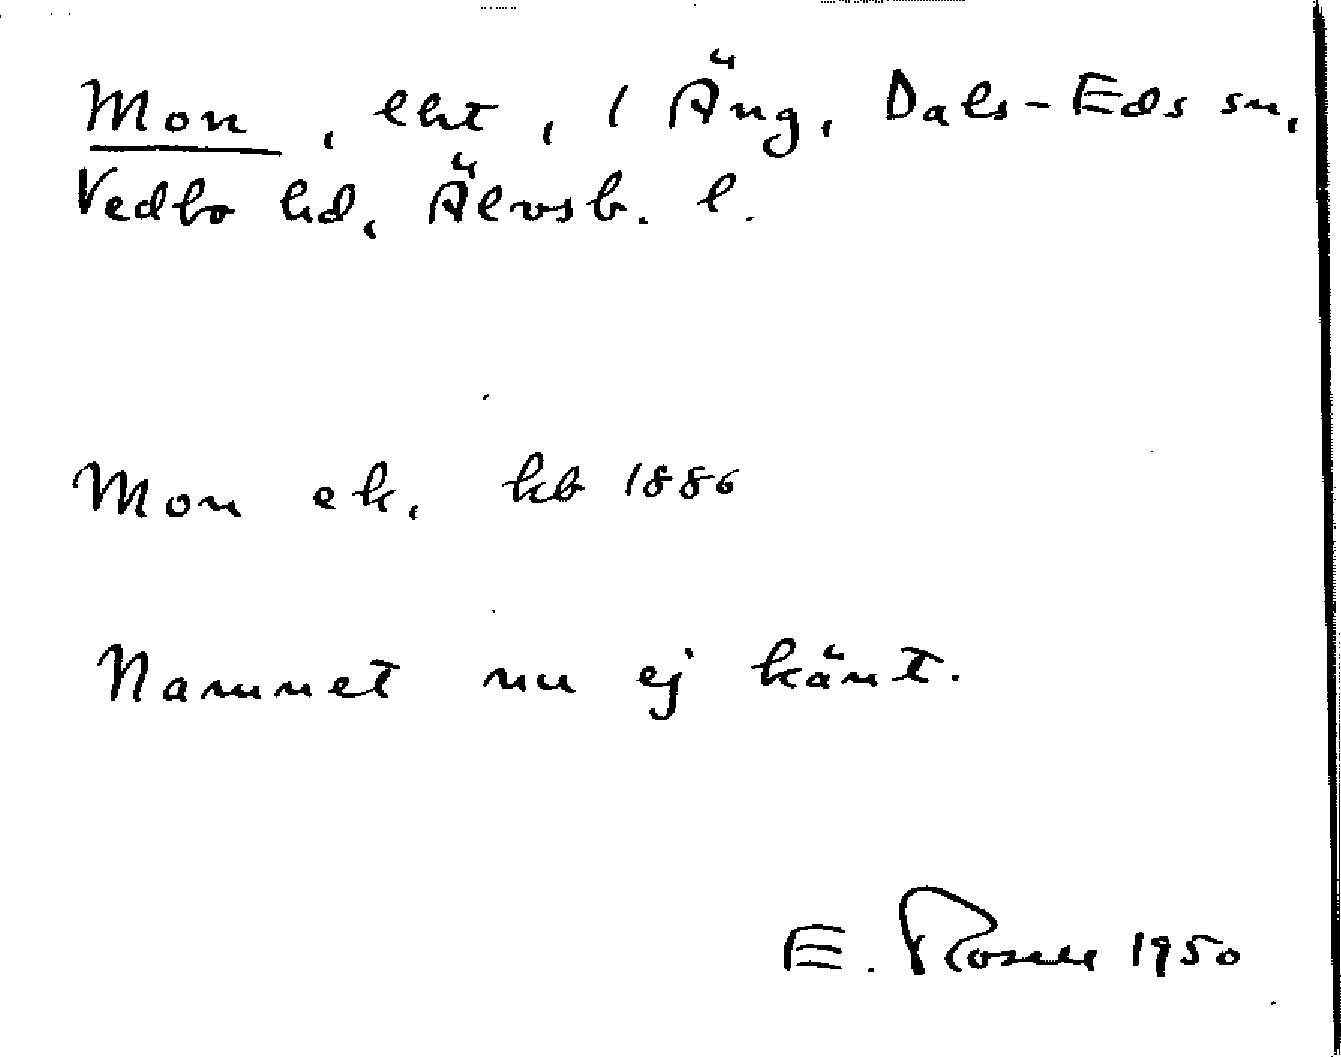 Mon, lht, 1 Äng, Dals-Eds sn,
Vedbo hd, Älvsb. l.
Mon ek. kb 1886
Namnet nu ej känt.
E. Rosell 1950